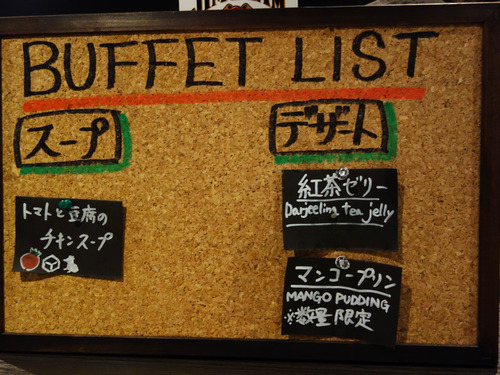 BUFFET LIST
スープ
トマトと豆腐の
チキンスープ
デザート
紅茶ゼリー
Darjeeling tea jelly
マンゴープリン
MANGO PUDDING
※数量限定